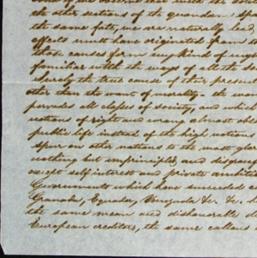 the other sections of the quondam Spa
the same fate, we are naturally lead,
effects must have originated from the
those causes for any kind of
familiar with the ways of the
the true cause of their present
other than the want of morality - the
pervades all classes of society, and which
notions of right and wrong almost
public life instead of the high notions
spur on other nations to the most
nothing but unprincipled, and disgrac
except self interest and private ambition
Governments which have succeeded
Granada, Equador, Venezuela &c. &c.
the same mean and dishonorable
European creditors, the same callous